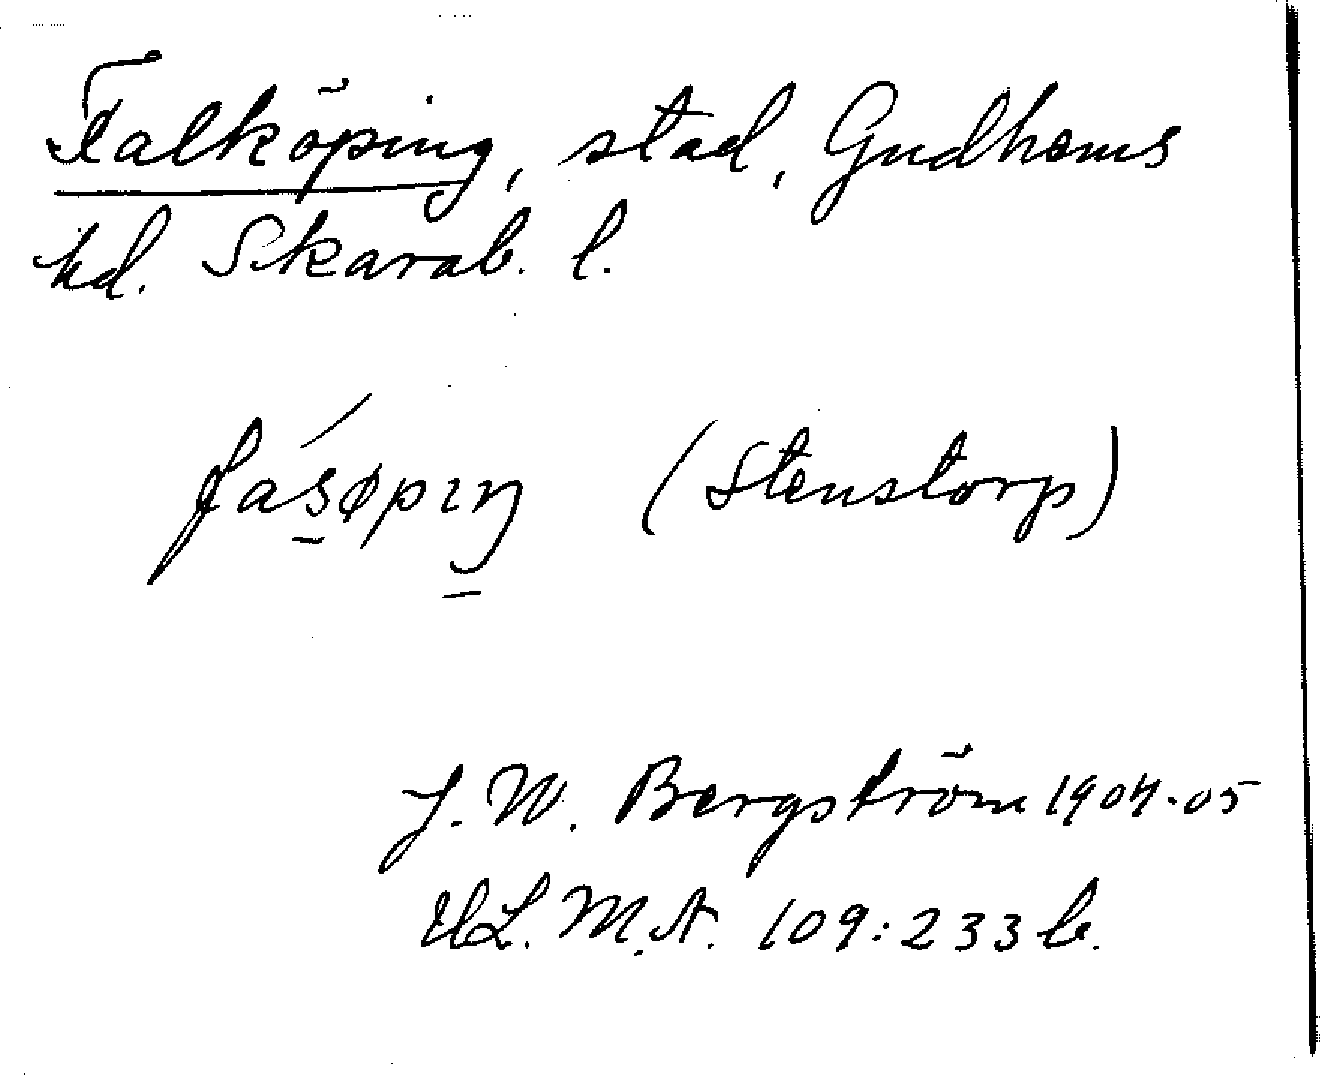 Falköping, stad, Gudhems
hd. Skarab. l.
fásøpıŋ (Stenstorp)
J. W. Bergström 1904-05
ULMA. 109:233 b.